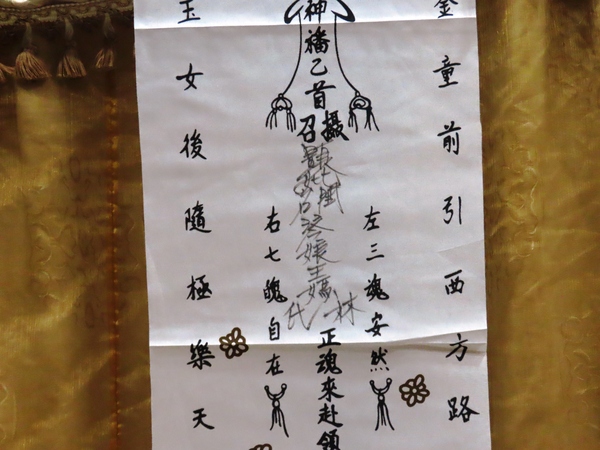 金童前引西方路
左三魂安然
神旛乙首
攝召
林氏
正魂來赴領
右七魄自在
玉女後隨極樂天